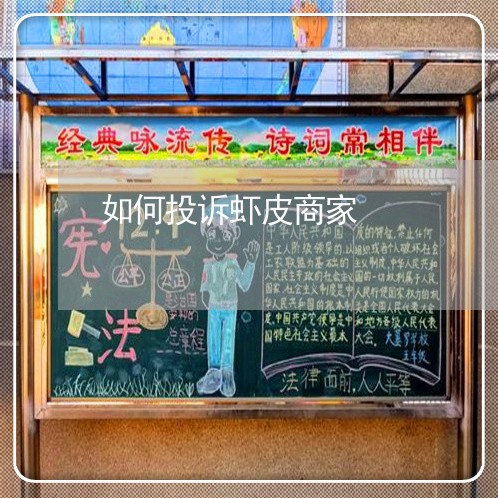 经典咏流传 诗词常相伴
如何投诉虾皮商家
宪法
12.4
公平 公正
总章程
中华人民共和国
是工人阶级领导的,以
工农联盟为基础的
人民民主专政的社会主义
国家.社会主义制度是中
华人民共和国的根本制
度.中国共产党领导是中
国特色社会主义最本
质的特征.禁止任何
组织或者个人破坏社会
主义制度.中华人民共和
国的一切权利属于人民.
人民行使国家权力的机
关是全国人民代表大会
和地方各级人民代表
大会.
学校
五年级
法律面前,人人平等